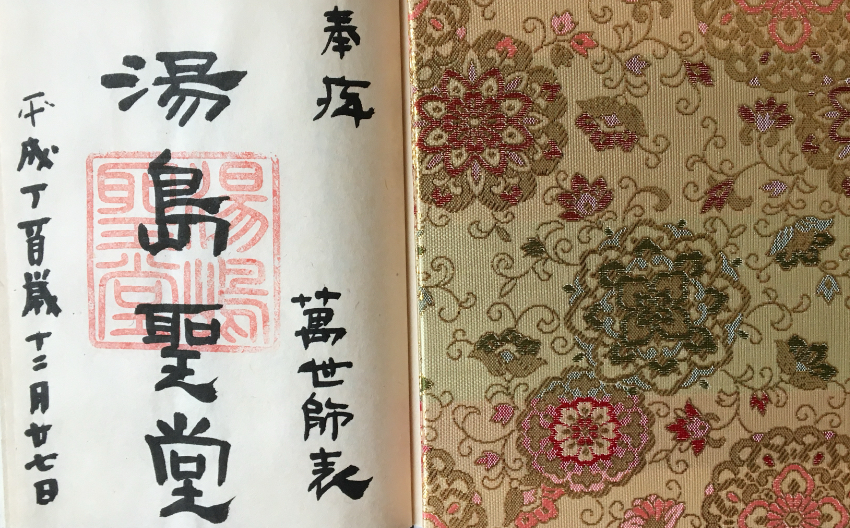 奉拝
萬世師表
湯島聖堂
平成丁酉歳十二月廿七日
湯嶋
聖堂